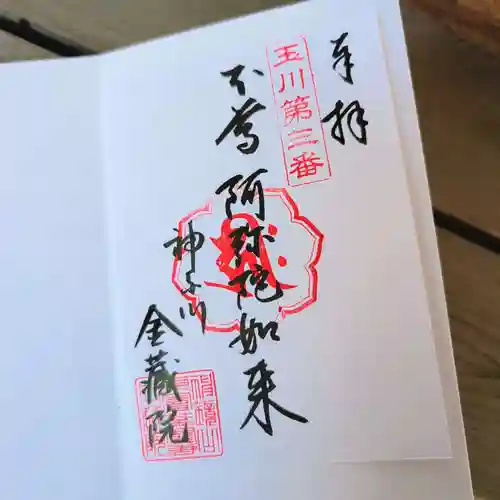 奉拝
玉川第三番
不動 阿弥陀如来
神奈川
金蔵院